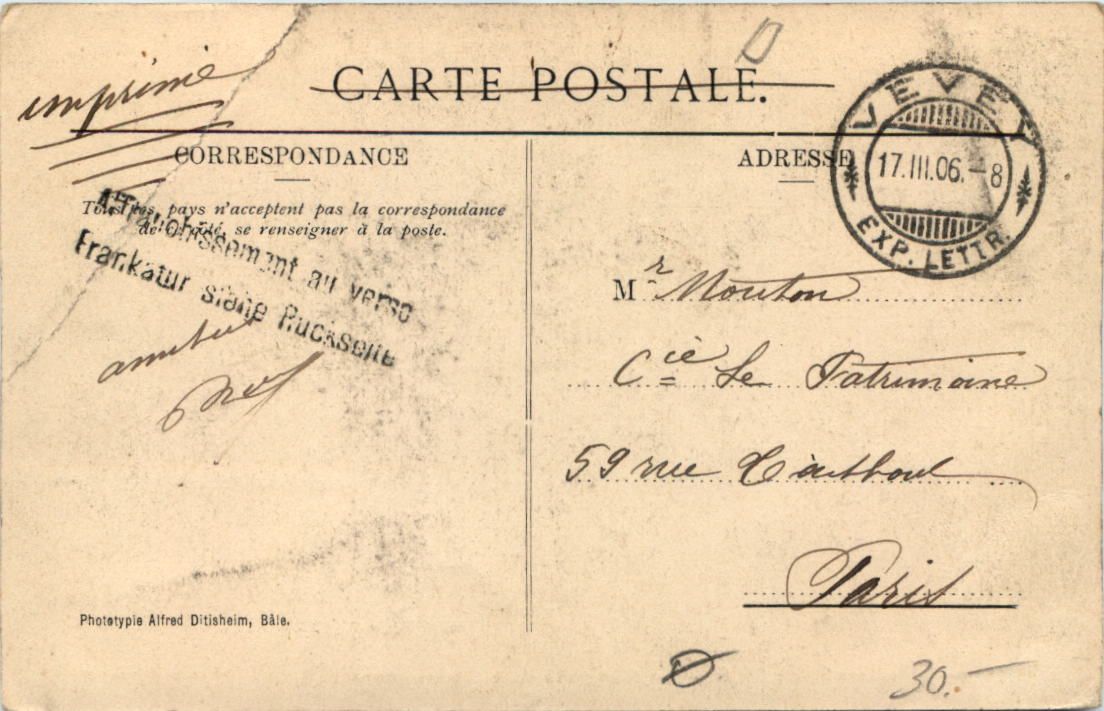 imprimé
CARTE POSTALE.
VEVEY
17.III.06.-8
EXP. LETTR.
CORRESPONDANCE
ADRESSE
Tous les pays n'acceptent pas la correspondance
de ce côté, se renseigner à la poste.
Affranchissement au verso
Frankatur siehe Rückseite
Mr Mouton
Cie Le Patrimoine
59 rue
Paris
Phototypie Alfred Ditisheim, Bâle.
30.-